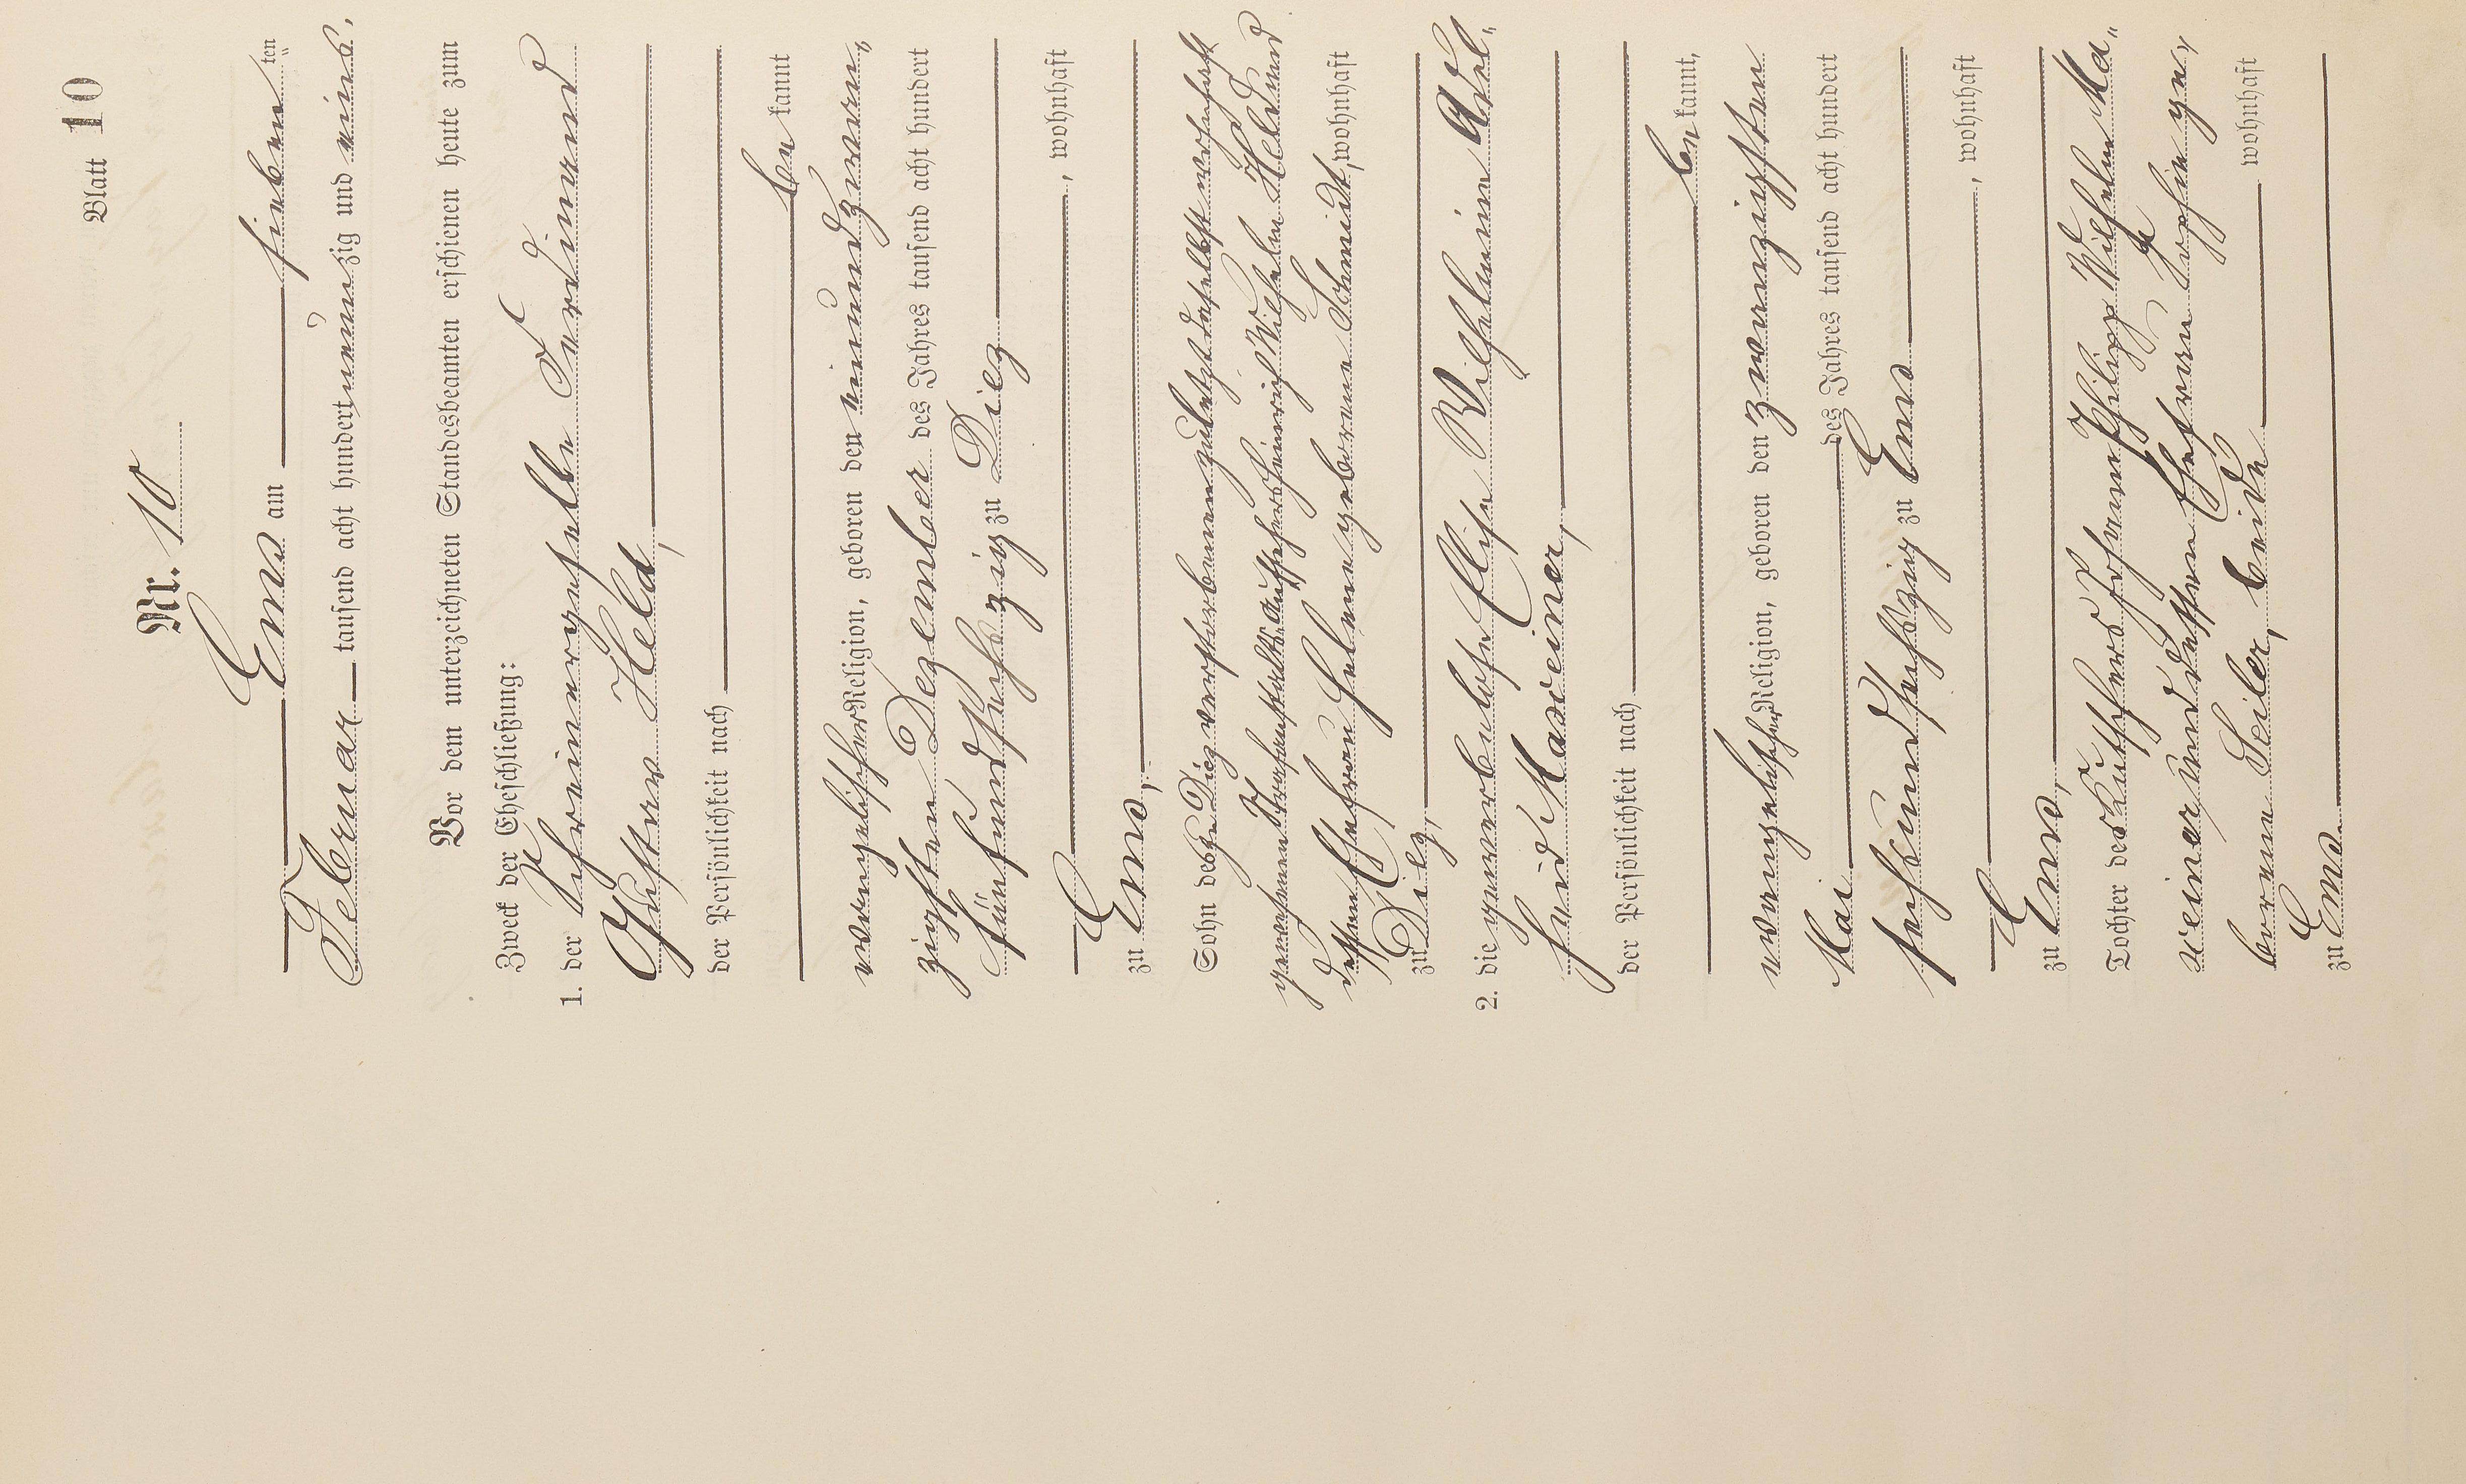 Blatt 10
Nr. 10
Ems am sieben ten
Februar tausend acht hundert neunzig und eins.
Vor dem unterzeichneten Standesbeamten erschienen heute zum
Zweck der Eheschließung:
1. der Schreinergeselle Ferdinand
Gustav Held,
der Persönlichkeit nach
be kannt
evangelischer Religion, geboren den einundzwan„
zigsten Dezember des Jahres tausend acht hundert
fünfundsechszig zu Diez
, wohnhaft
zu Ems,
Sohn des zu Diez verstorbenen zuletzt daselbst wohnhaft
gewesenen Strafanstalts-Aufsehers Heinrich Wilhelm Held und
dessen Ehefrau Helene geborene Schmidt, wohnhaft
zu Diez,
2. die gewerbelose Elise Wilhelmine Adel„
heid Maxeiner,
der Persönlichkeit nach
be kannt,
evangelischer Religion, geboren den zwanzigsten
Mai des Jahres tausend acht hundert
sechsundsechszig zu Ems
, wohnhaft
zu Ems,
Tochter des Kutschers Johann Philipp Wilhelm Ma„
xeiner und dessen Ehefrau Sophie ge„
borene Seiler, beide wohnhaft
zu Ems.